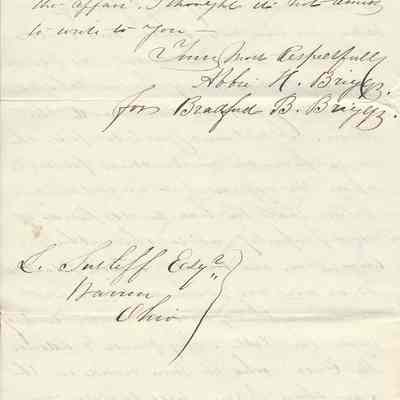 the affair. I thought it not amiss
to write to you —
Your Most Respectfully
Abbie H. Briggs.
for Bradford B. Briggs.
L. Sutliff Esqr
Warren
Ohio